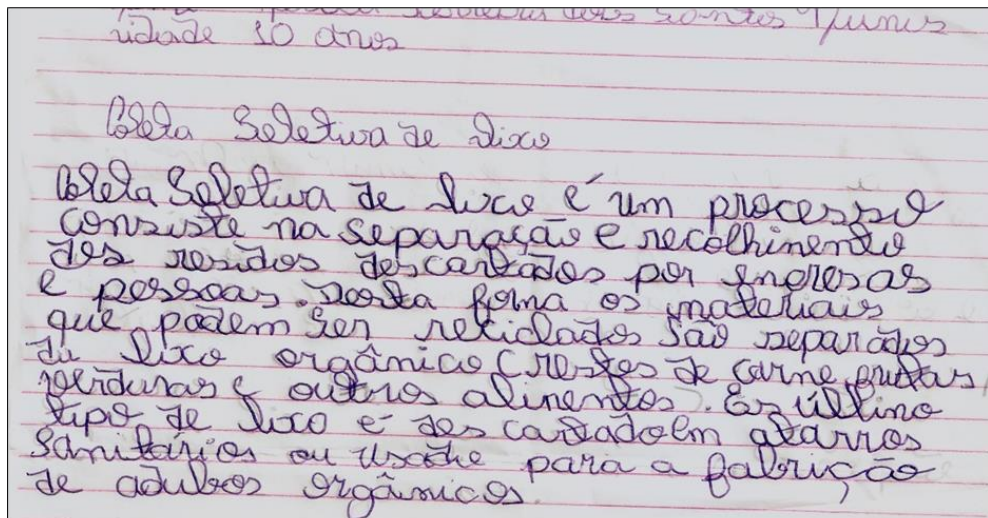 dos Santos Junior
idade 10 anos
Coleta Seletiva de lixo
Coleta Seletiva de lixo é um processo
consiste na separação e recolhinento
dos residos descartados por enpresas
e pessoas. desta forna os materiais
que podem ser reciclados são separados
du lixo orgânico (restes de carne frutas
verduras e outros alinentos. Es últino
tipo de lixo é des cartado em atarros
Sanitários ou usodre para a fabrição
de adubos orgânicos.